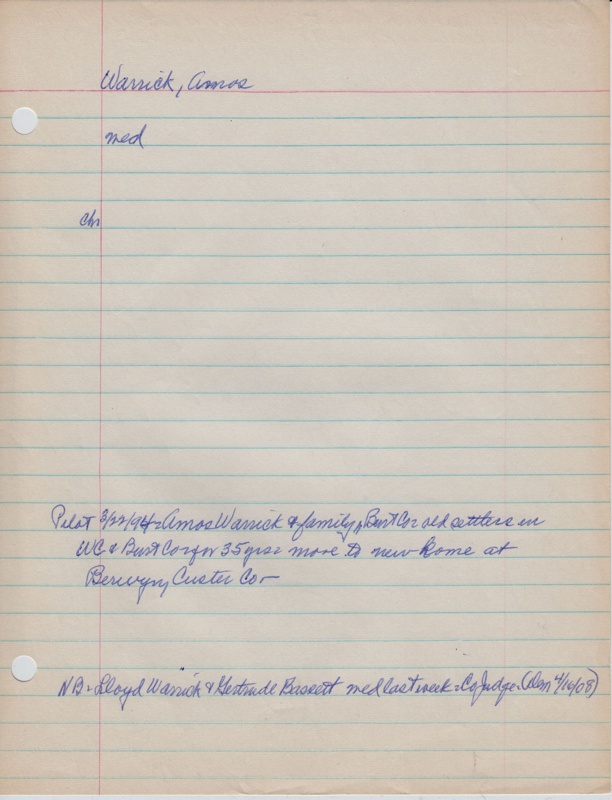 Warrick, Amos
med
ch
Pilot 3/22/94 = Amos Warrick & family, Burt Co = old settlers in
WC & Burt Co for 35 yrs = move to new home at
Berwyn, Custer Co —
NB = Lloyd Warrick & Gertrude Bassett med last week = Co Judge = (Dem 4/16/08)